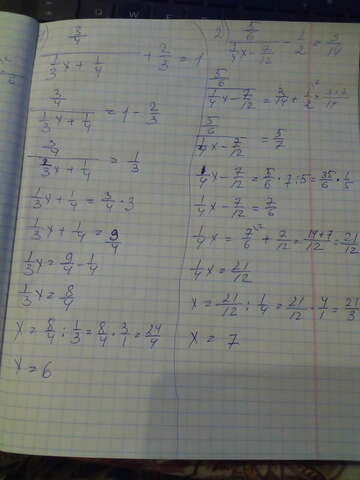 1) 3/4 / (1/3 x + 1/4) + 2/3 = 1
3/4 / (1/3 x + 1/4) = 1 - 2/3
3/4 / (1/3 x + 1/4) = 1/3
1/3 x + 1/4 = 3/4 · 3
1/3 x + 1/4 = 9/4
1/3 x = 9/4 - 1/4
1/3 x = 8/4
x = 8/4 : 1/3 = 8/4 · 3/1 = 24/4
x = 6
2) 5/6 / (1/4 x - 7/12) - 1/2 = 3/14
5/6 / (1/4 x - 7/12) = 3/14 + 1/2
5/6 / (1/4 x - 7/12) = 5/7
1/4 x - 7/12 = 5/6 · 7 : 5 = 35/6 · 1/5
1/4 x - 7/12 = 7/6
1/4 x = 7/6 + 7/12 = 14+7/12 = 21/12
1/4 x = 21/12
x = 21/12 : 1/4 = 21/12 · 4/1 = 21/3
x = 7